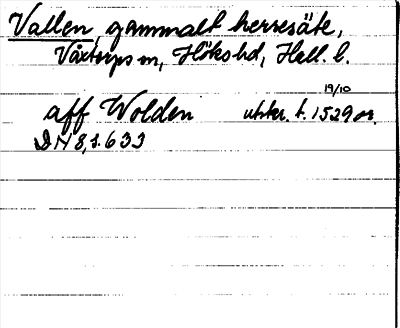 Vallen, gammalt herresäte,
Våxtorps sn, Höks hd, Hall. l.
19/10
aff Wolden utskr. t. 1529 or.
DN 8, s. 633